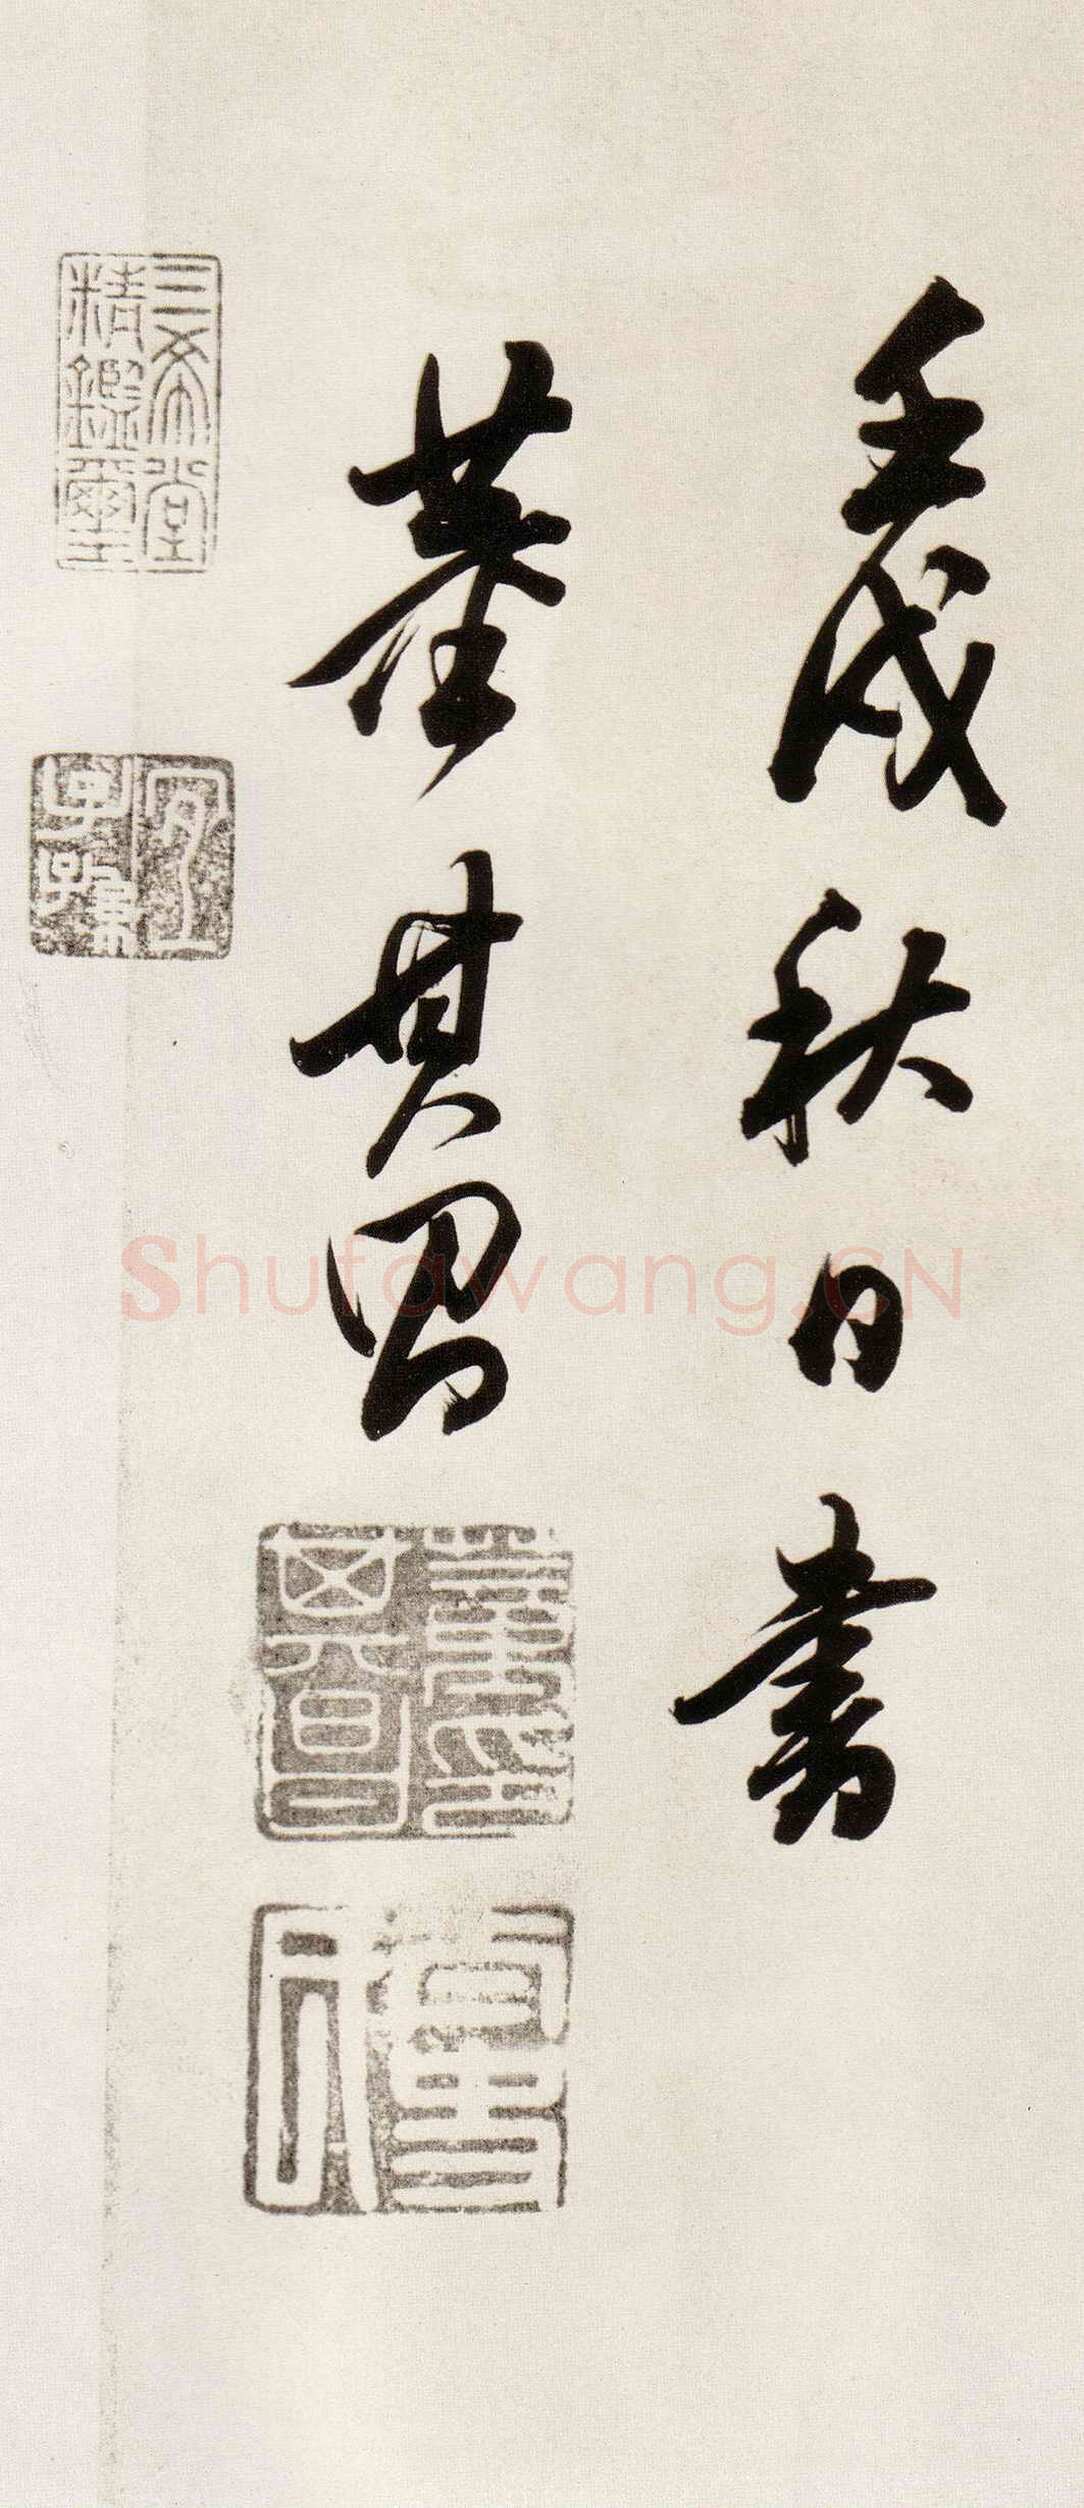 壬戌秋日書
董其昌
三希堂
精鑑璽
宜子孫
董其昌印
Shufawang.CN